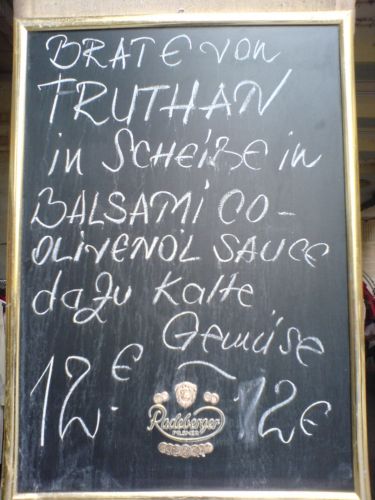 BRATE von
TRUTHAN
in SCHEIßE in
BALSAMICO-
OLIVENÖL SAUCE
dazu Kalte
Gemüse
12.€ – 12€
Radeberger
PILSNER